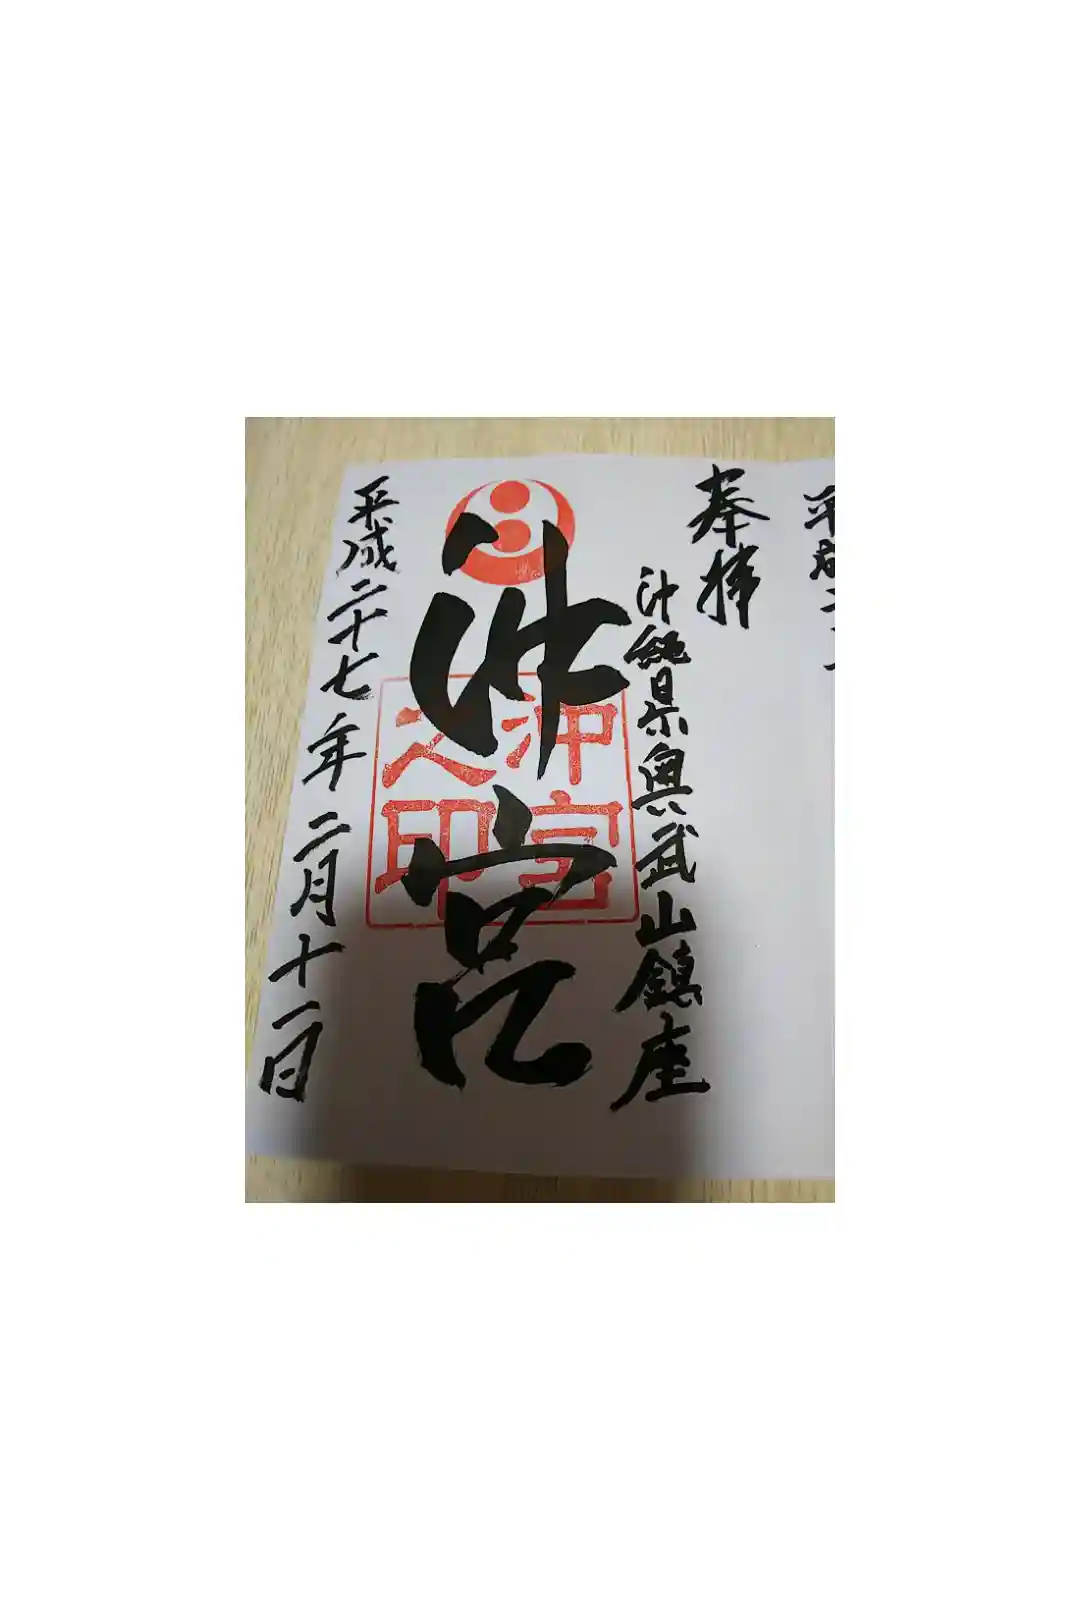 奉拝
沖縄県奥武山鎮座
沖宮
沖宮
之印
平成二十七年二月十一日
平成二十